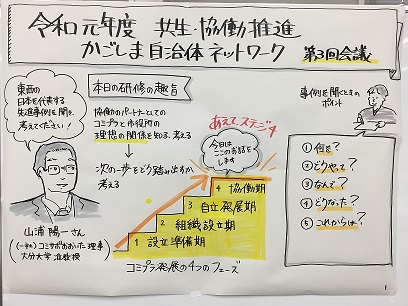 令和元年度 共生・協働推進
かごしま自治体ネットワーク 第3回会議
東西の
日本を代表する
先進事例を聞き、
考えてください!
山浦 陽一さん
(一社)コミサポおおいた理事
大分大学 准教授
本日の研修の趣旨
協働のパートナーとしての
コミプラと市役所の
理想の関係を知る、考える
次の一歩をどう踏み出すか
考える
あえてステージ4
今日は
ここのお話を
します
4 協働期
3 自立発展期
2 組織設立期
1 設立準備期
コミプラ発展の4つのフェーズ
事例を聞くときの
ポイント
① 何を?
② どうやって?
③ なんで?
④ どうなった?
⑤ これからは?
1